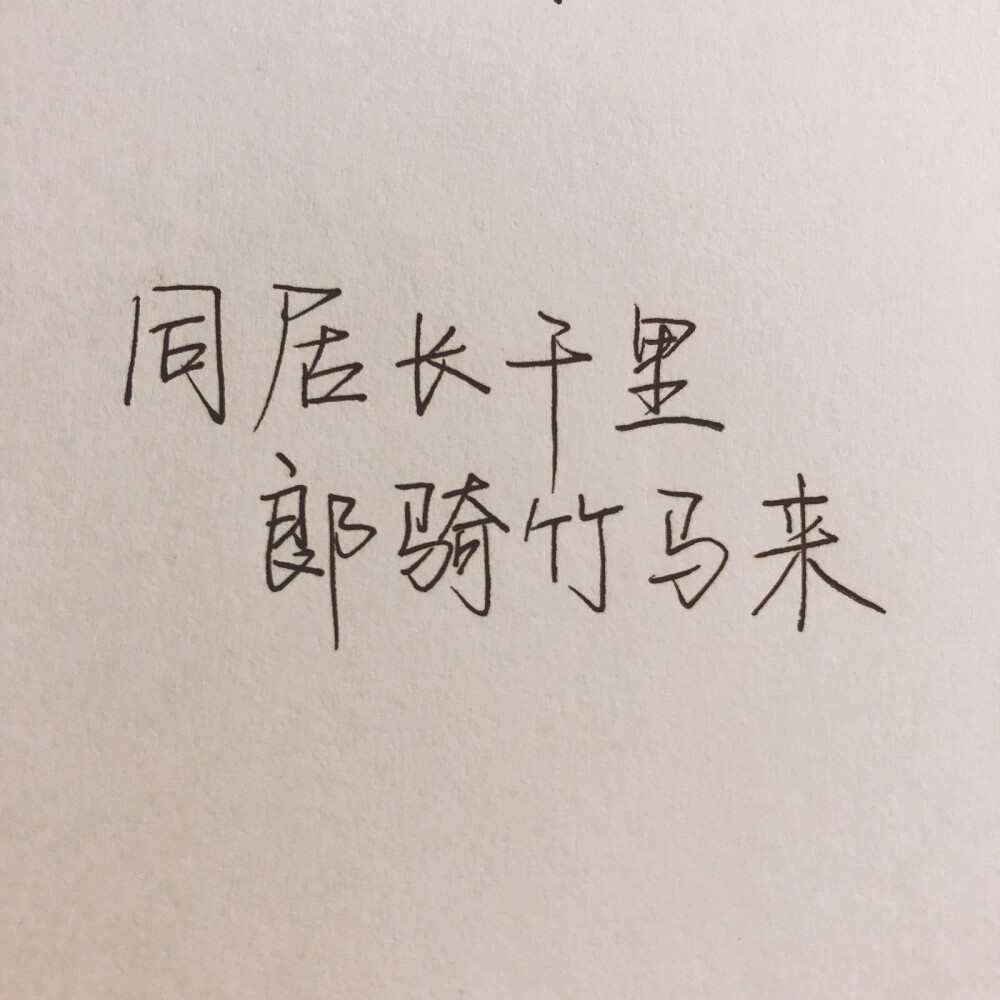 同居长干里
郎骑竹马来